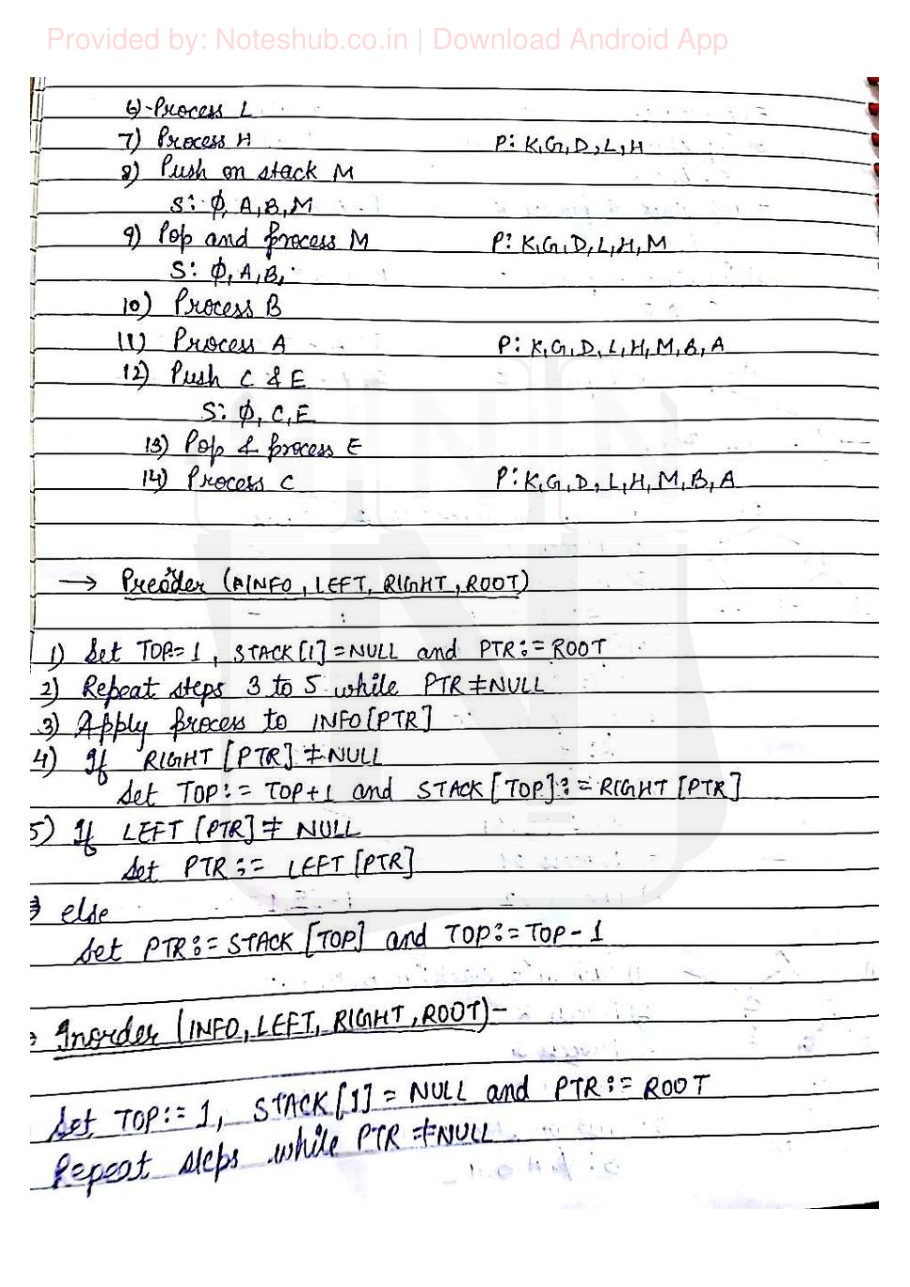 Provided by: Noteshub.co.in | Download Android App
6) Process L
7) Process H P: K,G,D,L,H
8) Push on stack M
S: φ, A,B,M
9) Pop and process M P: K,G,D,L,H,M
S: φ, A,B,
10) Process B
11) Process A P: K,G,D,L,H,M,B,A
12) Push C & E
S: φ, C,E
13) Pop & process E
14) Process C P: K,G,D,L,H,M,B,A
→ Preorder (INFO, LEFT, RIGHT, ROOT)
1) Set TOP=1, STACK[1]=NULL and PTR:=ROOT
2) Repeat steps 3 to 5 while PTR≠NULL
3) Apply process to INFO[PTR]
4) If RIGHT [PTR] ≠NULL
Set TOP:= TOP+1 and STACK [TOP]:= RIGHT [PTR]
5) If LEFT [PTR] ≠ NULL
Set PTR:= LEFT [PTR]
else
Set PTR:= STACK [TOP] and TOP:=TOP-1
Inorder (INFO, LEFT, RIGHT, ROOT)-
Set TOP:= 1, STACK[1] = NULL and PTR:= ROOT
Repeat steps while PTR ≠NULL